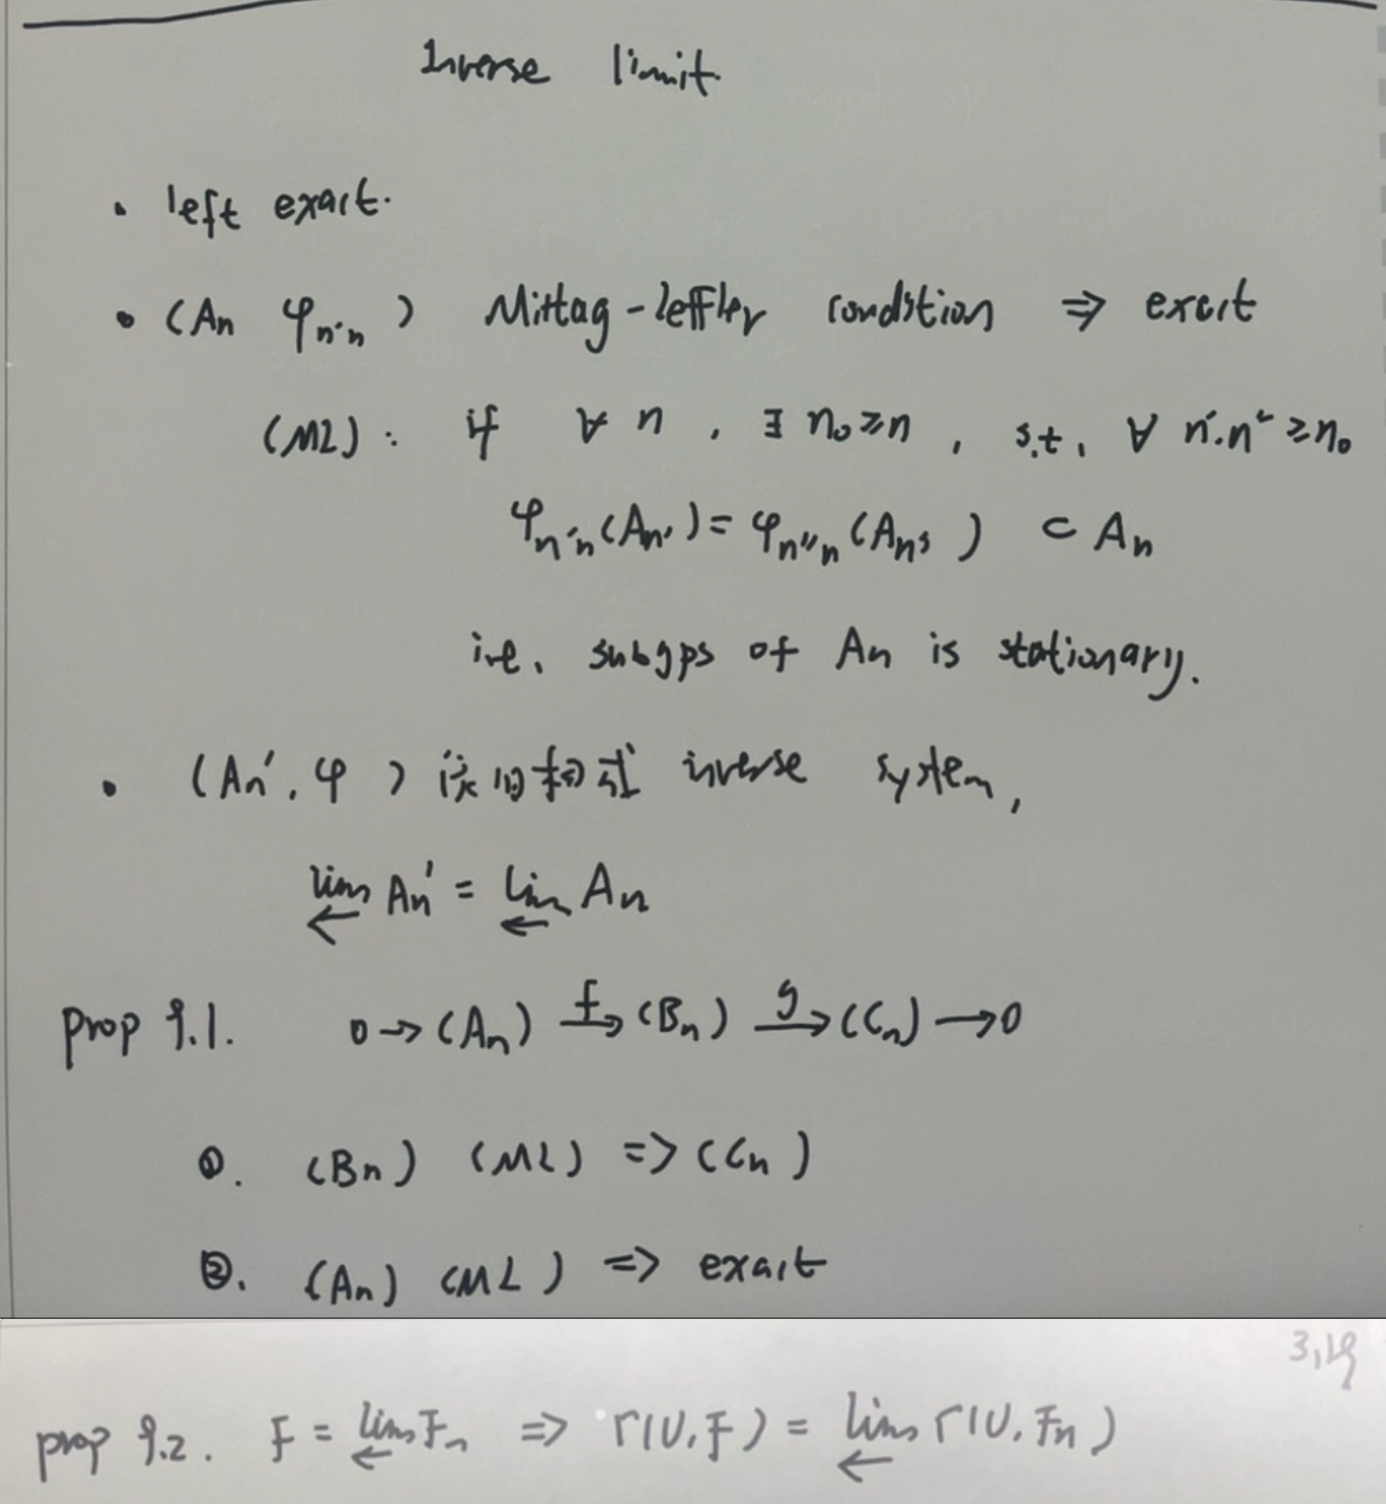 Inverse limit.
• left exact.
• (An φn'n) Mittag-Leffler condition ⇒ exact
(ML): if ∀ n, ∃ n₀≥n, s.t. ∀ n'.n" ≥n₀
φn'n(An')= φn"n(An") ⊂ An
i.e. subgps of An is stationary.
• (An', φ) inverse system,
lim← An' = lim← An
prop 9.1. 0→(An) f→ (Bn) g→ (Cn)→0
①. (Bn) (ML) => (Cn)
②. (An) (ML) => exact
3.19
prop 9.2. F = lim← Fn => Γ(U,F) = lim← Γ(U,Fn)